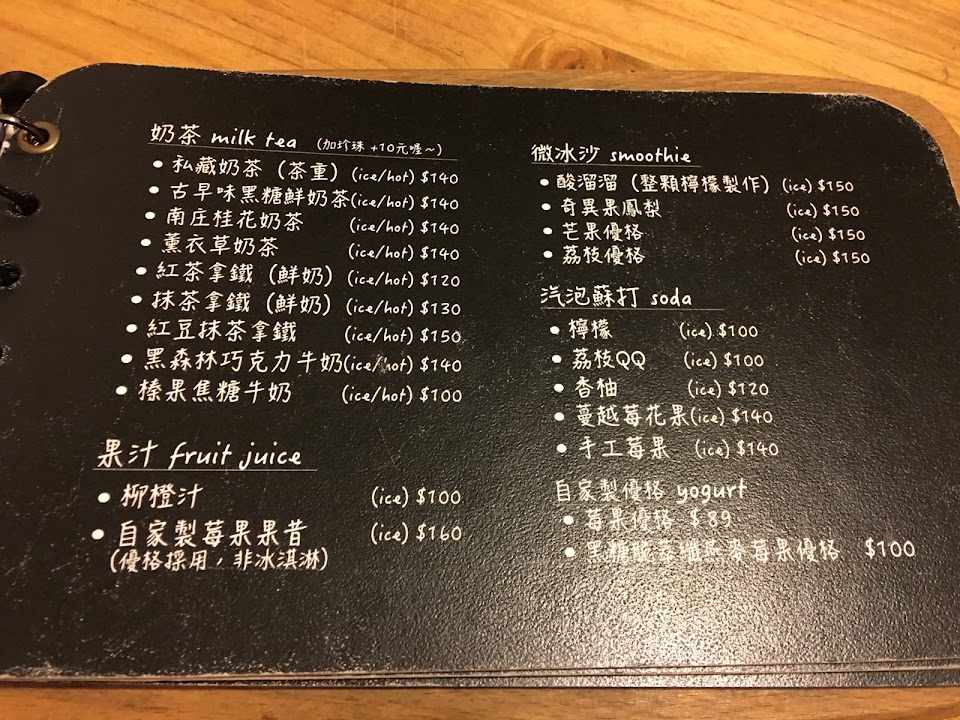 奶茶 milk tea (加珍珠 +10元喔~)
• 私藏奶茶 (茶重) (ice/hot) $140
• 古早味黑糖鮮奶茶(ice/hot) $140
• 南庄桂花奶茶 (ice/hot) $140
• 薰衣草奶茶 (ice/hot) $140
• 紅茶拿鐵 (鮮奶) (ice/hot) $120
• 抹茶拿鐵 (鮮奶) (ice/hot) $130
• 紅豆抹茶拿鐵 (ice/hot) $150
• 黑森林巧克力牛奶(ice/hot) $140
• 榛果焦糖牛奶 (ice/hot) $100
果汁 fruit juice
• 柳橙汁 (ice) $100
• 自家製莓果果昔 (ice) $160
(優格採用，非冰淇淋)
微冰沙 smoothie
• 酸溜溜 (整顆檸檬製作) (ice) $150
• 奇異果鳳梨 (ice) $150
• 芒果優格 (ice) $150
• 荔枝優格 (ice) $150
汽泡蘇打 soda
• 檸檬 (ice) $100
• 荔枝QQ (ice) $100
• 香柚 (ice) $120
• 蔓越莓花果(ice) $140
• 手工莓果 (ice) $140
自家製優格 yogurt
• 莓果優格 $89
• 黑糖脆莓纖燕麥莓果優格 $100